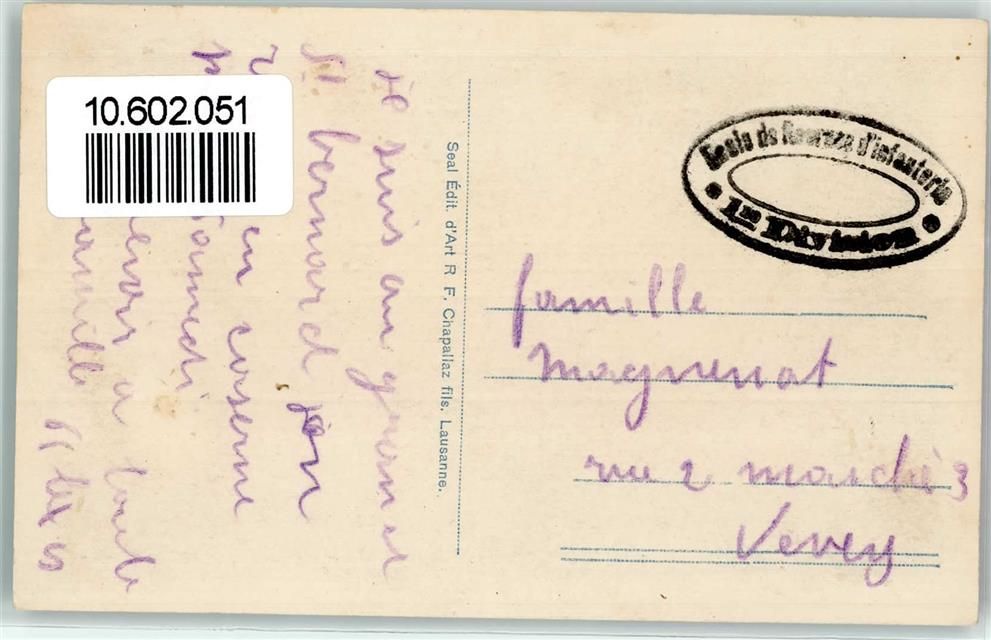 10.602.051
je suis au grand
St bernard jon
en caserne
Samedi
a toute
famille
Seal Édit. d'Art R F. Chapallaz fils. Lausanne.
Ecole de Recrues d'Infanterie
1re Division
famille
Magnenat
rue 2 marchés 3
Vevey